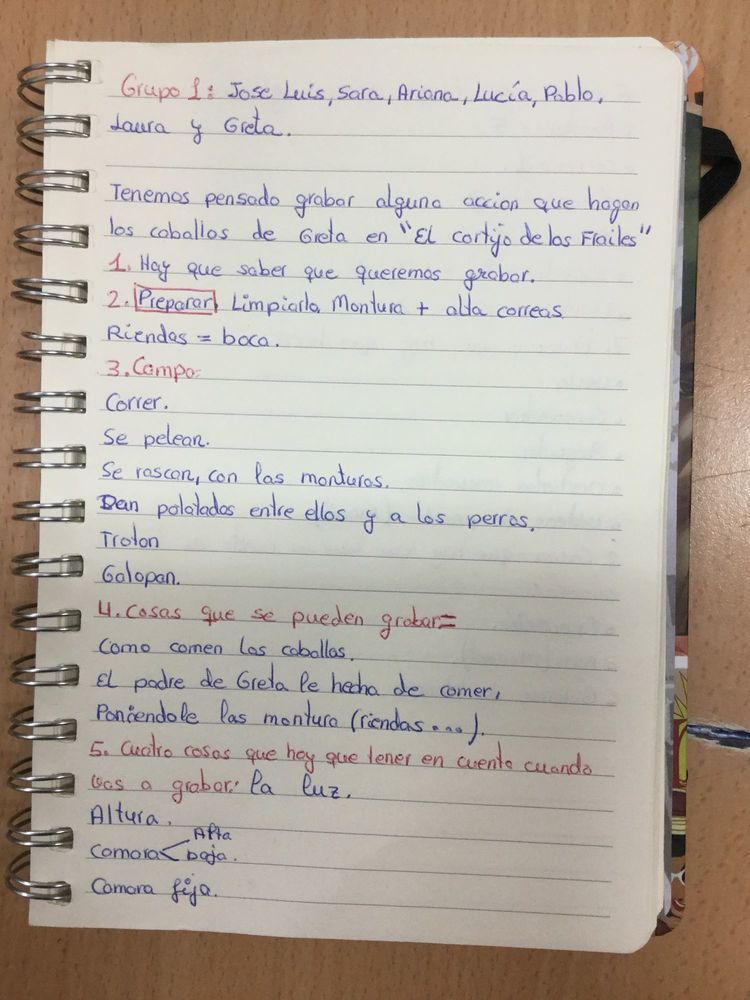 Grupo 1: Jose Luis, Sara, Ariana, Lucía, Pablo,
Laura y Greta.
Tenemos pensado grabar alguna accion que hagan
los caballos de Greta en "El cortijo de los Frailes"
1. Hay que saber que queremos grabar.
2. Preparar Limpiarla Montura + alta correas
Riendas = boca.
3. Campo:
Correr.
Se pelean.
Se rascan, con las monturas.
Dan patatadas entre ellos y a los perros.
Trotan
Galopan.
4. Cosas que se pueden grabar=
Como comen los caballos.
El padre de Greta le hecha de comer,
Poniendole las montura (riendas...).
5. Cuatro cosas que hay que tener en cuenta cuando
vas a grabar: la luz.
Altura.
Camara < Alta
baja.
Camara fija.